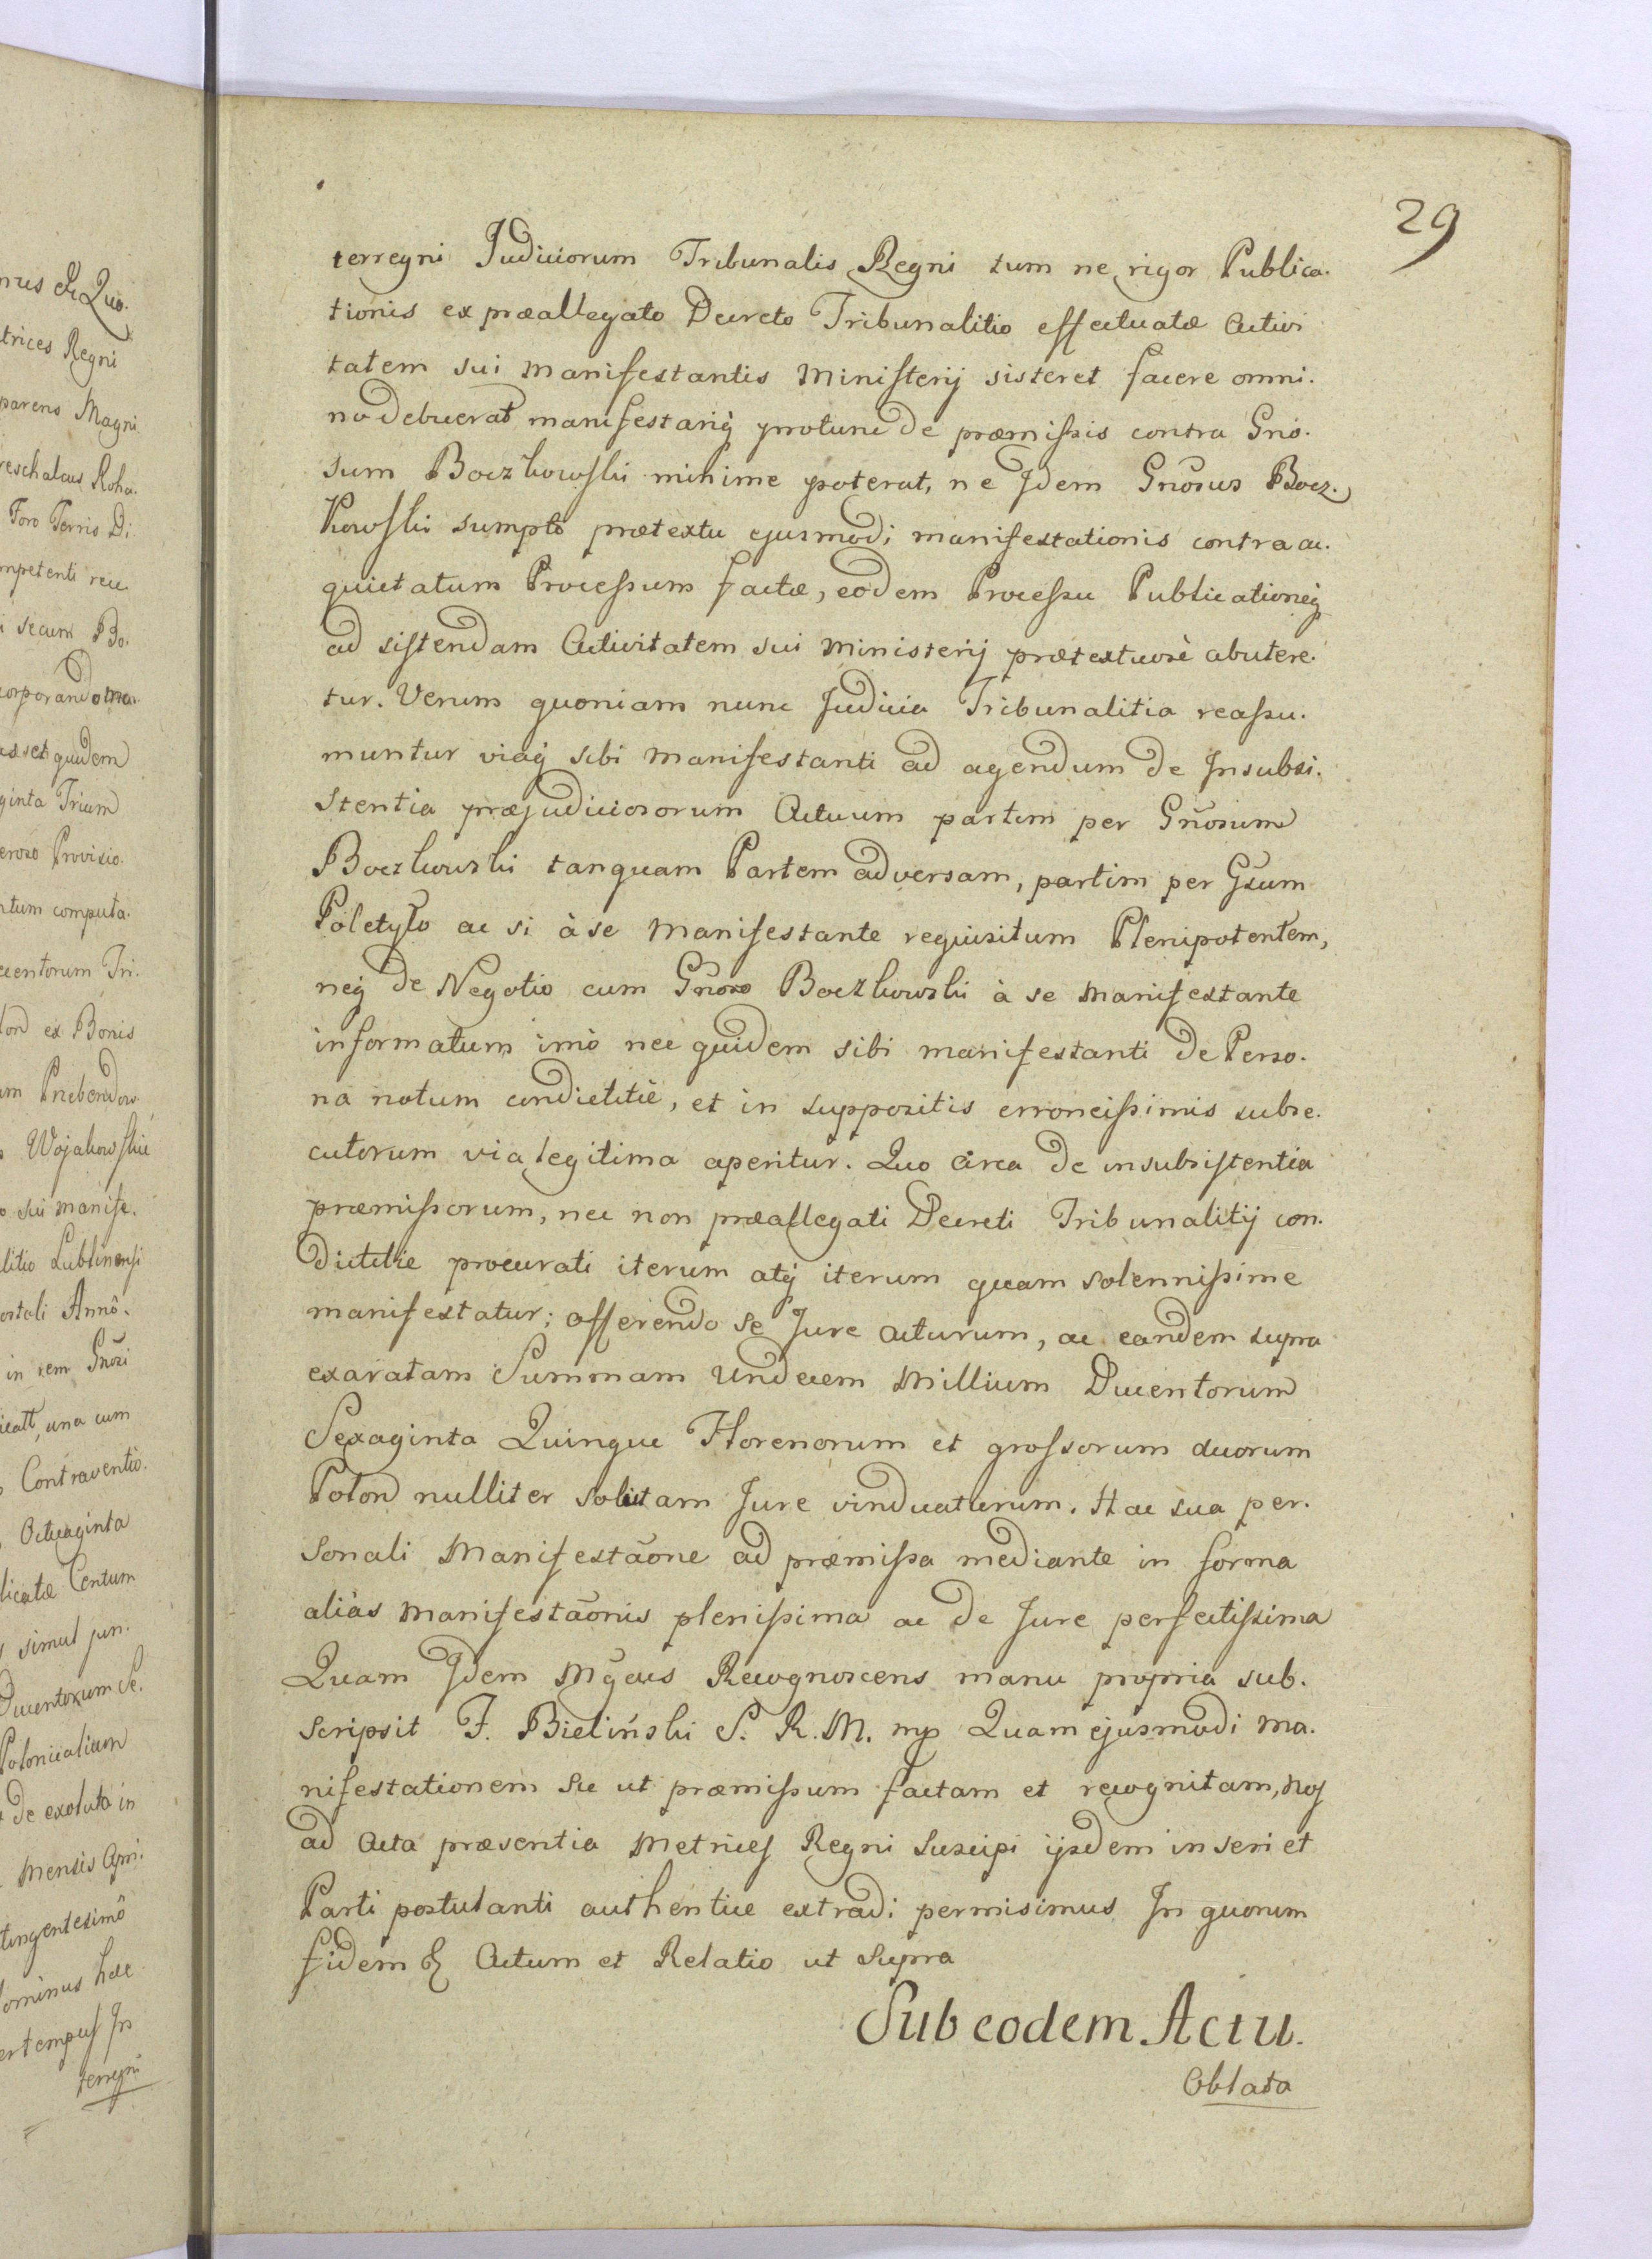 29
terregni Judiciorum Tribunalis Regni tum ne rigor Publica-
tionis ex præallegato Decreto Tribunalitio effectuatæ Activi
tatem sui manifestantis Ministerij sisteret facere omni-
no debuerat manifestariq protunc de præmissis contra Gno-
sum Boczkowski minime poterat, ne Idem Gnosus Bocz-
kowski sumpto prætextu ejusmodi manifestationis contra ac-
quietatum Processum factæ, eodem Processu Publicationeq
ad sistendam Activitatem sui Ministerij prætextuosè abutere-
tur. Verum quoniam nunc Judicia Tribunalitia reassu-
muntur viaq sibi manifestanti ad agendum de Insubsi-
stentia præjudiciosorum Actuum partim per Gnosum
Boczkowski tanquam Partem adversam, partim per Gsum
Poletyło ac si à se manifestante requisitum Plenipotentem,
neq de Negotio cum Gnoso Boczkowski à se manifestante
informatum imò nec quidem sibi manifestanti de Perso-
na notum condictitiè, et in suppositis erroneissimis subse-
cutorum via legitima aperitur. Quo circa de insubsistentia
præmissorum, nec non præallegati Decreti Tribunalitij con-
dictitie procurati iterum atq iterum quam solennissime
manifestatur; offerendo se Jure acturum, ac eandem supra
exaratam Summam Undecem Millium Ducentorum
Sexaginta Quinque Florenorum et grossorum duorum
Polon nulliter solutam Jure vindicaturum. Hac sua per-
sonali Manifestaõne ad præmissa mediante in forma
aliàs manifestaõnis plenissima ac de Jure perfectissima
Quam Idem Mgcus Recognoscens manu propria sub-
scripsit F. Bieliński S. R. M. mp Quam ejusmodi ma-
nifestationem sic ut præmissum factam et recognitam, Nos
ad Acta præsentia Metrices Regni Suscipi ijsdem inseri et
Parti postulanti authentice extradi permisimus In quorum
fidem & Actum et Relatio ut supra
Sub eodem Actu.
Oblata